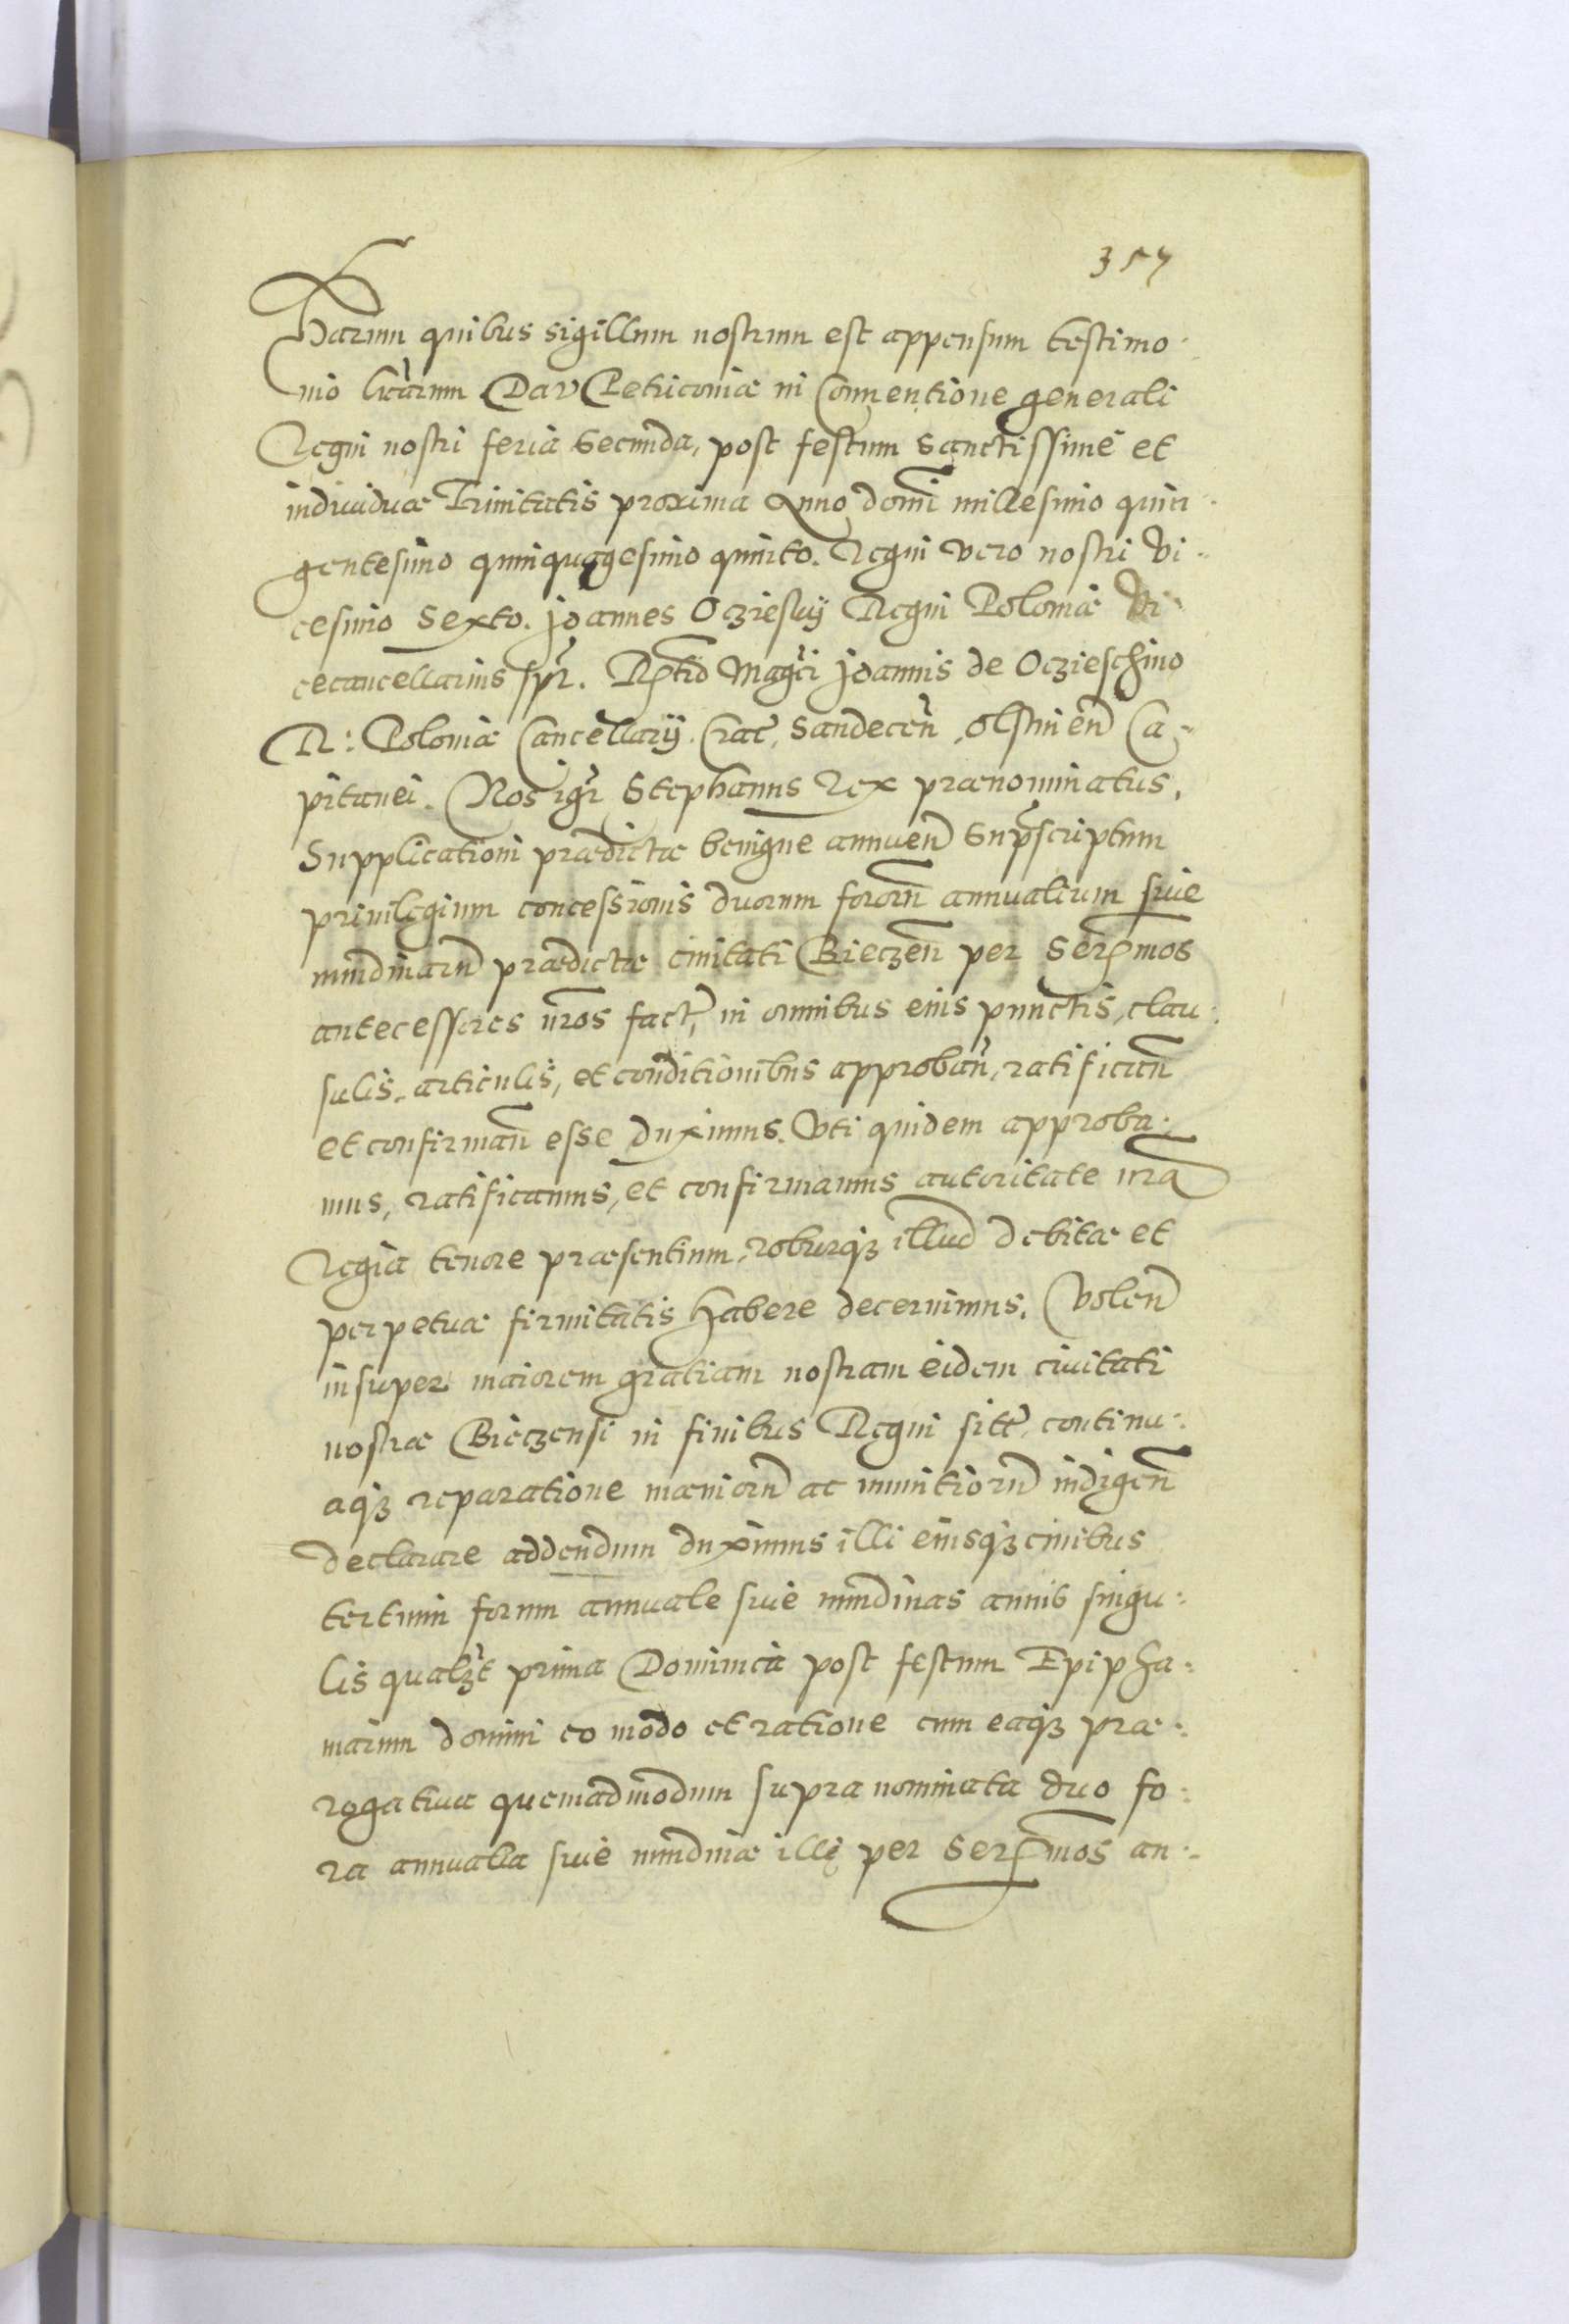 357
Harum quibus sigillum nostrum est appensum testimo-
nio lrãrum Dat Petricoviæ in Conventione generali
Regni nostri feria Secunda, post festum Sanctissime et
individuæ Trinitatis proxima Anno domĩ millesimo quin-
gentesimo quinquagesimo quinto. Regni vero nostri vi-
cesimo Sexto. Joannes Oczieski Regni Poloniæ Vi-
cecancellarius spr̃. Joannis de Oczieschino
R: Poloniæ Cancellarij. Crac̃, Sandecen̄, Olstinen̄ Ca-
pitanei. Nos igr̃ Stephanus Rex prænominatus,
Supplicationi prædictæ benigne annuen̄ Suprascriptum
privilegium concessionis duorum fororũ annualium sive
nundinarũ prædictæ civitati Bieczen̄ per Serẽmos
antecessores nr̃os fact̃, in omnibus eius punctis, clau-
sulis, articulis, et conditionibus approban̄, ratifican̄
et confirman̄ esse duximus. Uti quidem approba-
mus, ratificamus, et confirmamus autoritate nr̃a
Regia tenore præsentium, roburq3 illud debitæ et
perpetuæ firmitatis habere decernimus. Volen̄
insuper maiorem gratiam nostram eidem civitati
nostræ Bieczensi in finibus Regni sitæ, continu-
aq3 reparatione mæniorũ ac munitiorũ indigen̄
declarare addendum duximus illi eiusq3 civibus
tertium forum annuale sive nundinas annis singu-
lis qual3t prima Dominica post festum Epipha-
niarum domini eo modo et ratione cum eaq3 præ-
rogativa quemadmodum supra nominata duo fo-
ra annualia sive nundinæ illę per Serẽmos an-